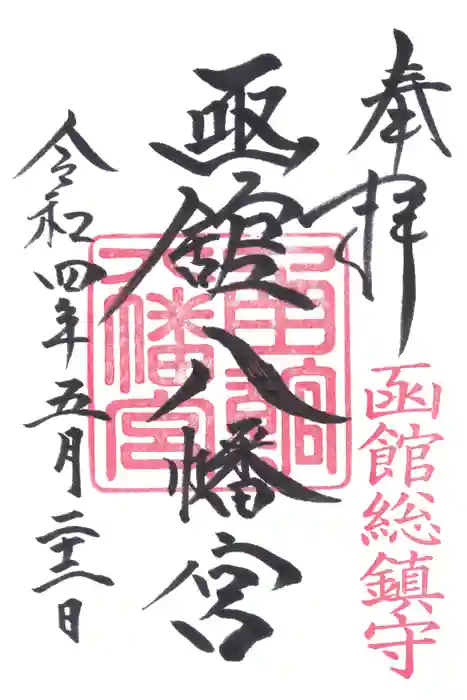 奉拝
函館総鎮守
函館八幡宮
函館
八幡宮
令和四年五月二十二日